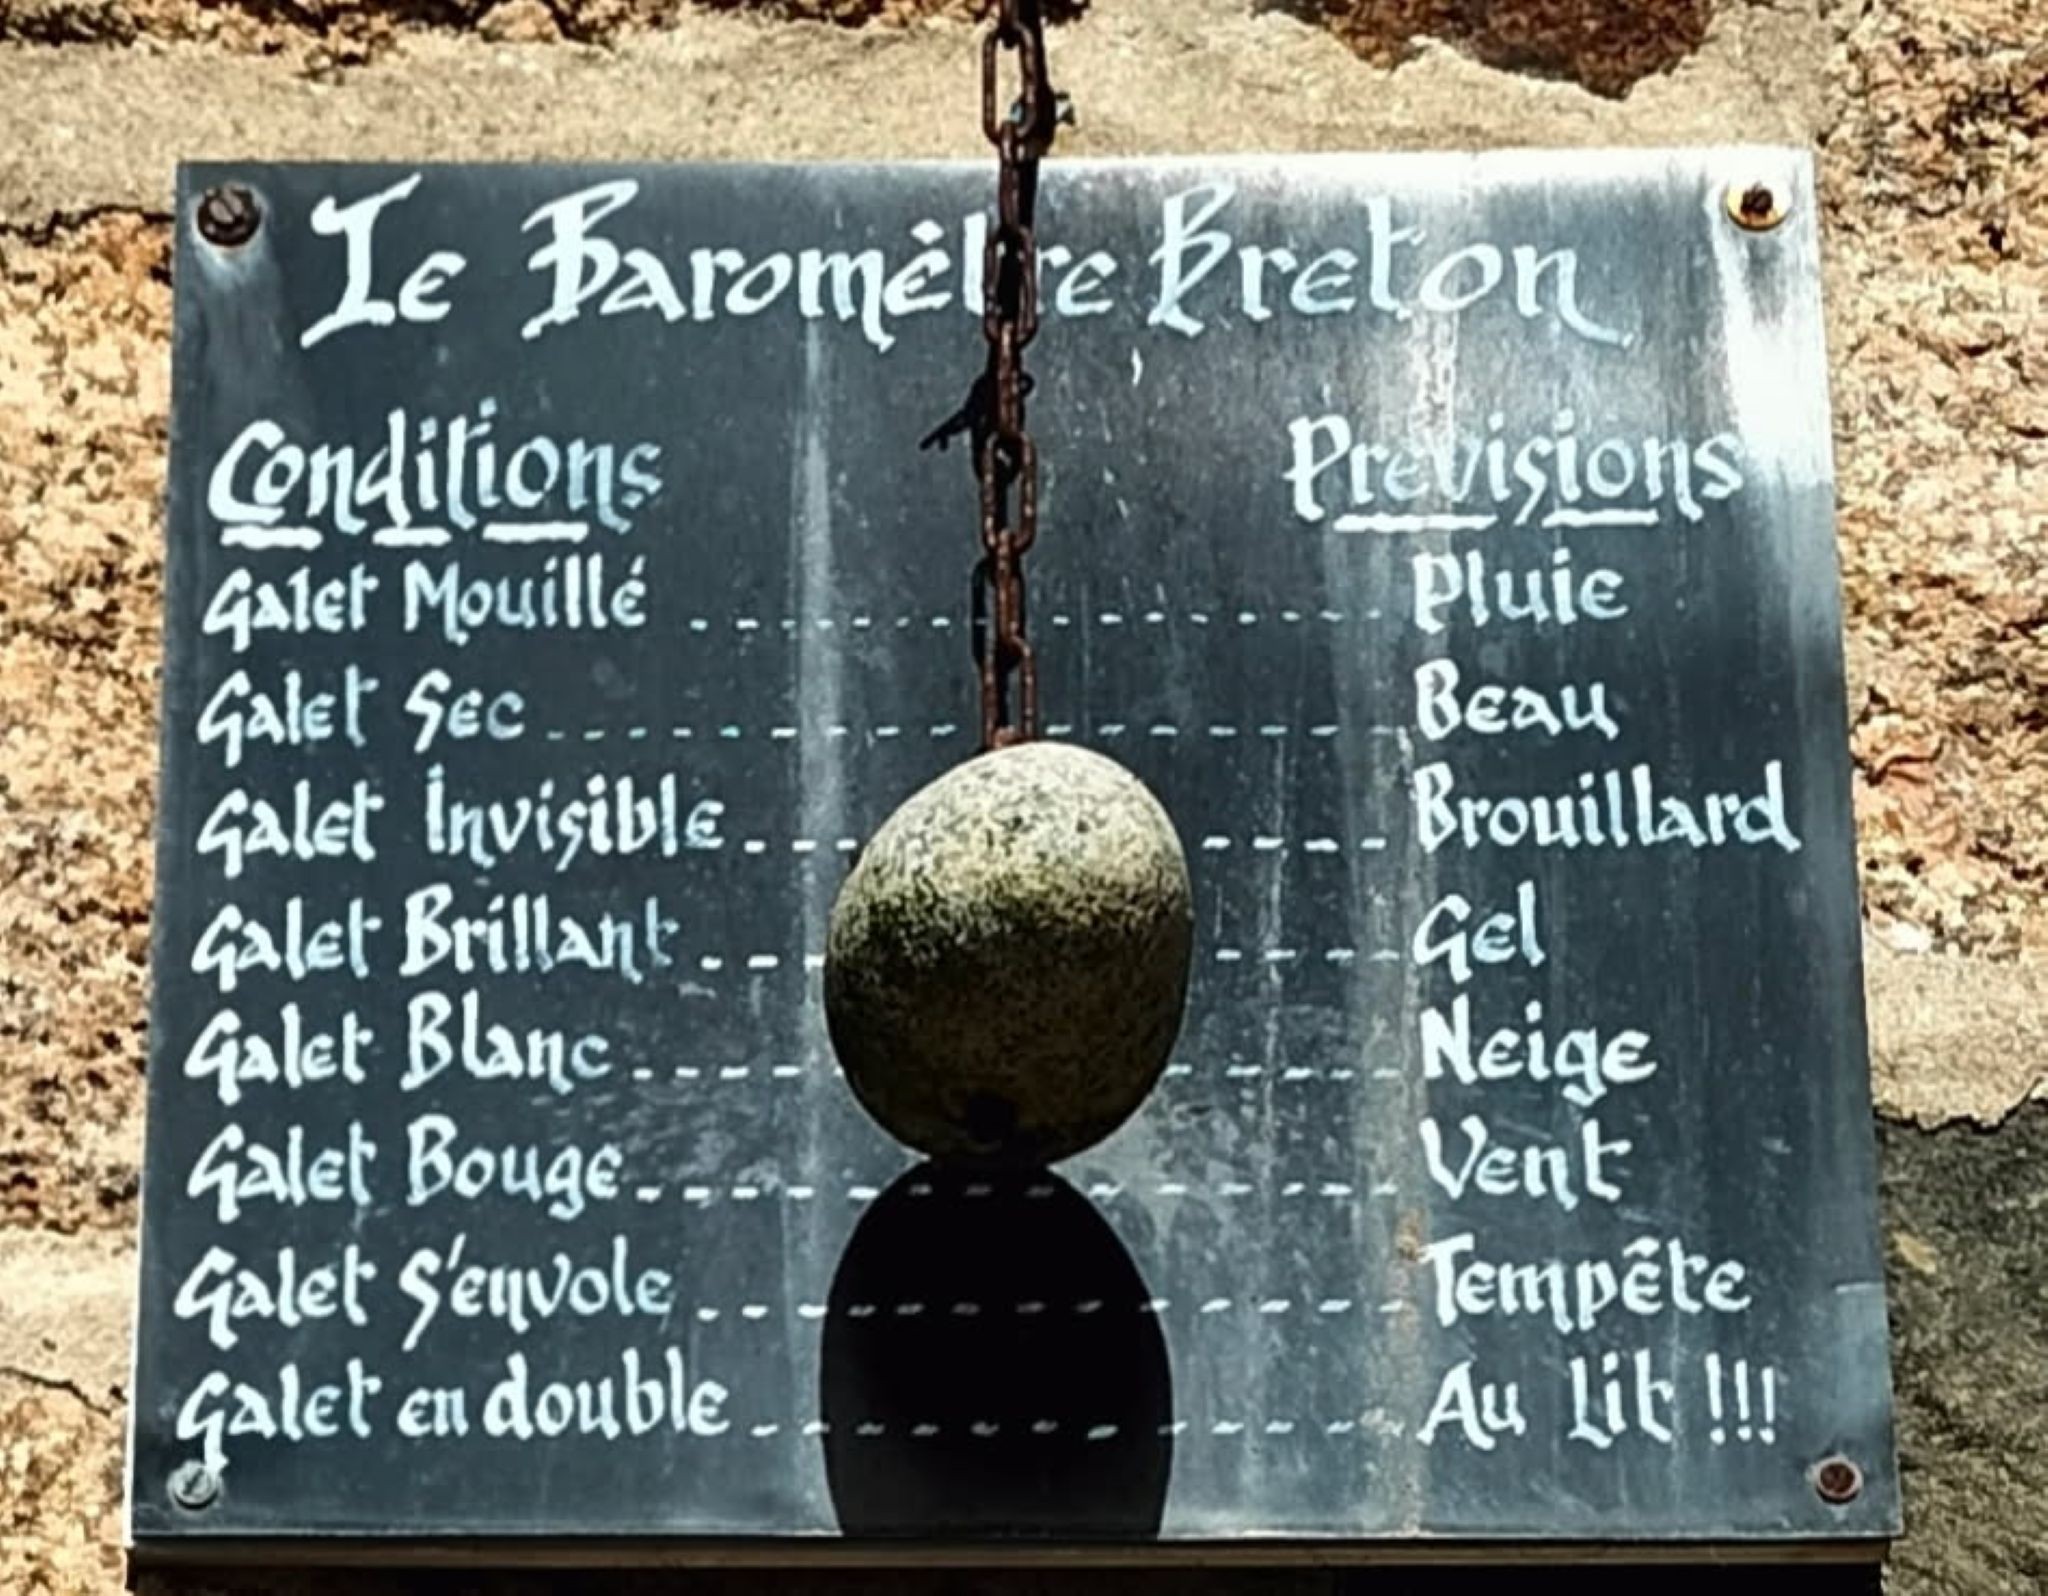 Le Baromètre Breton
Conditions Prévisions
Galet Mouillé Pluie
Galet Sec Beau
Galet Invisible Brouillard
Galet Brillant Gel
Galet Blanc Neige
Galet Bouge Vent
Galet s'envole Tempête
Galet en double Au Lit !!!